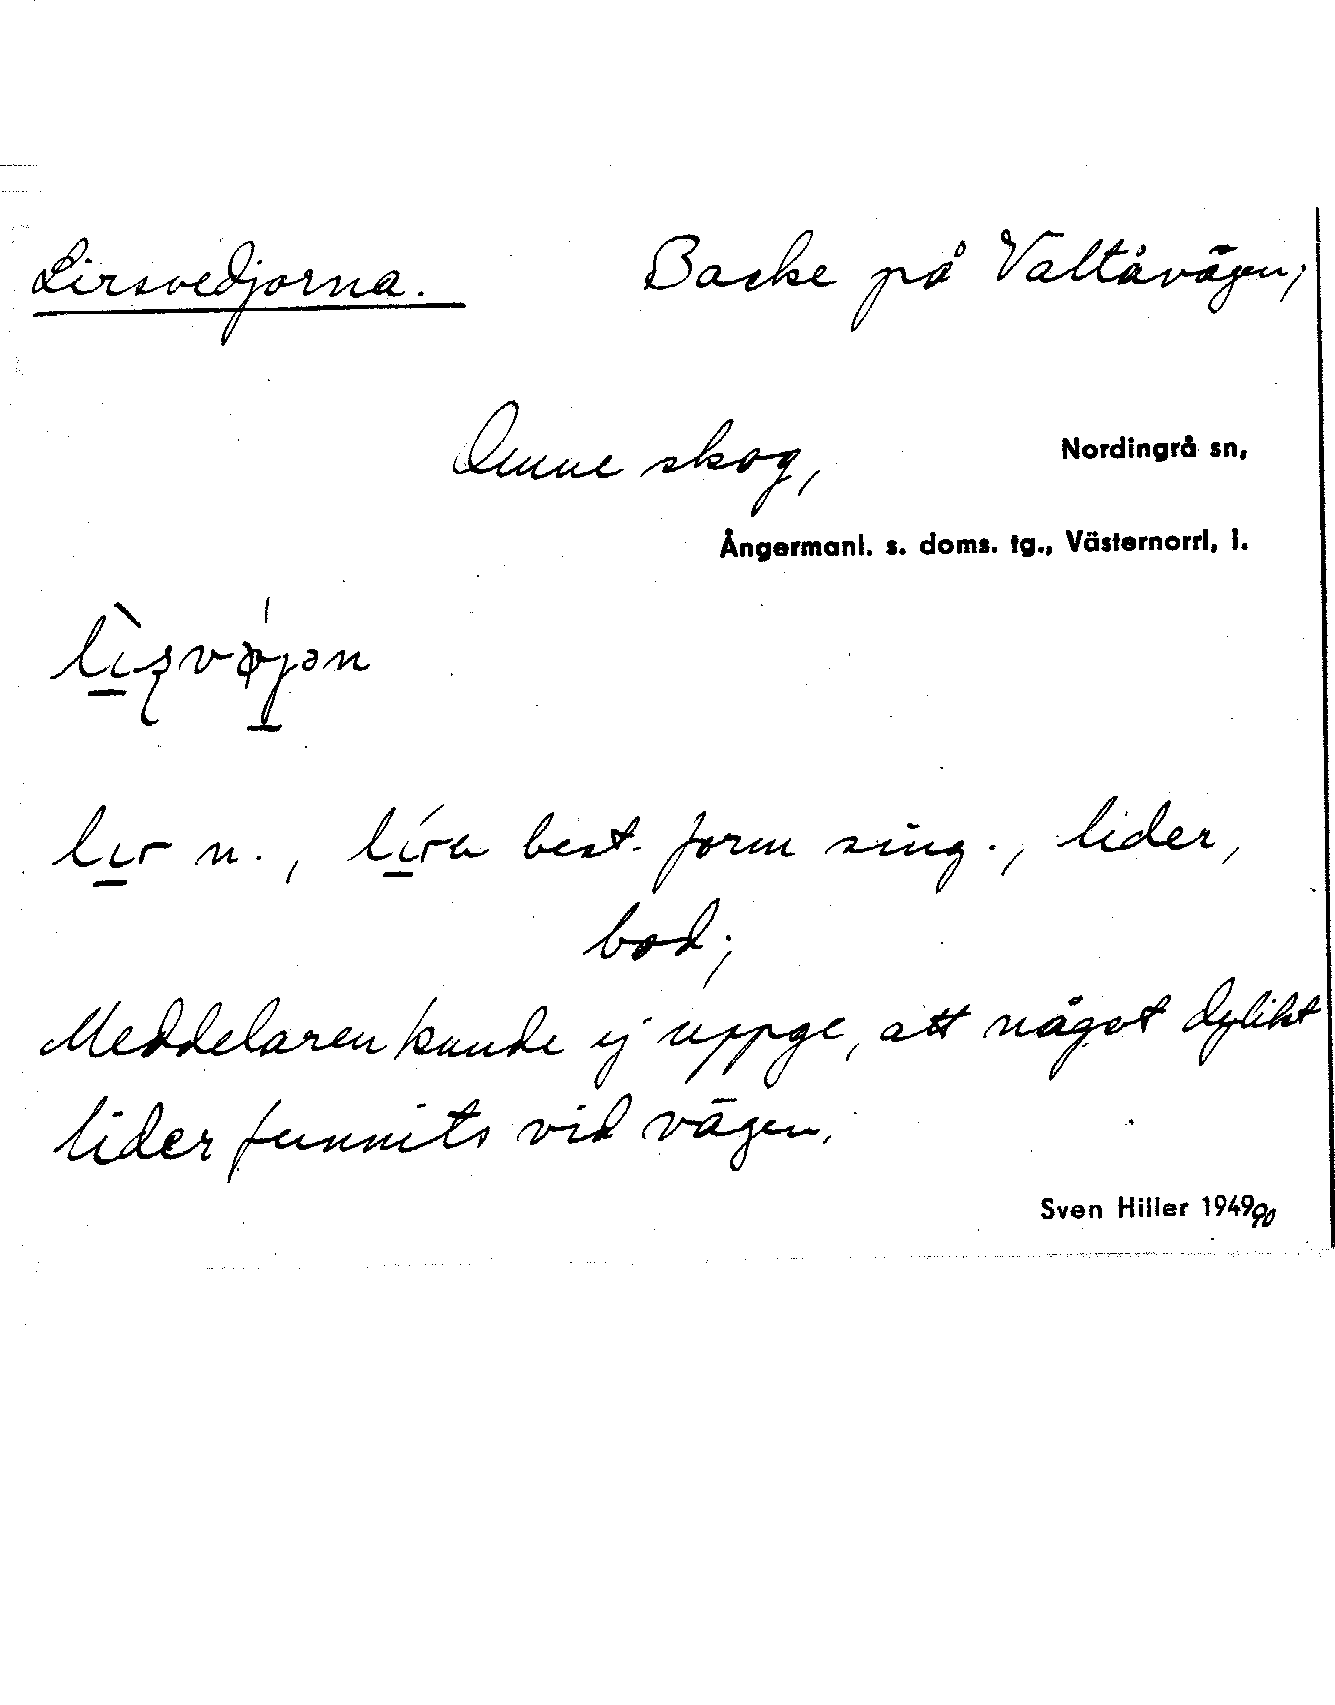 Lirsvedjorna. Backe på Valtåvägen,
Omne skog, Nordingrå sn,
Ångermanl. s. doms. tg., Västernorrl. l.
lir n., lira best. form sing., lider,
bod;
Meddelaren kunde ej uppge, att något dylikt
lider funnits vid vägen.
Sven Hiller 1949